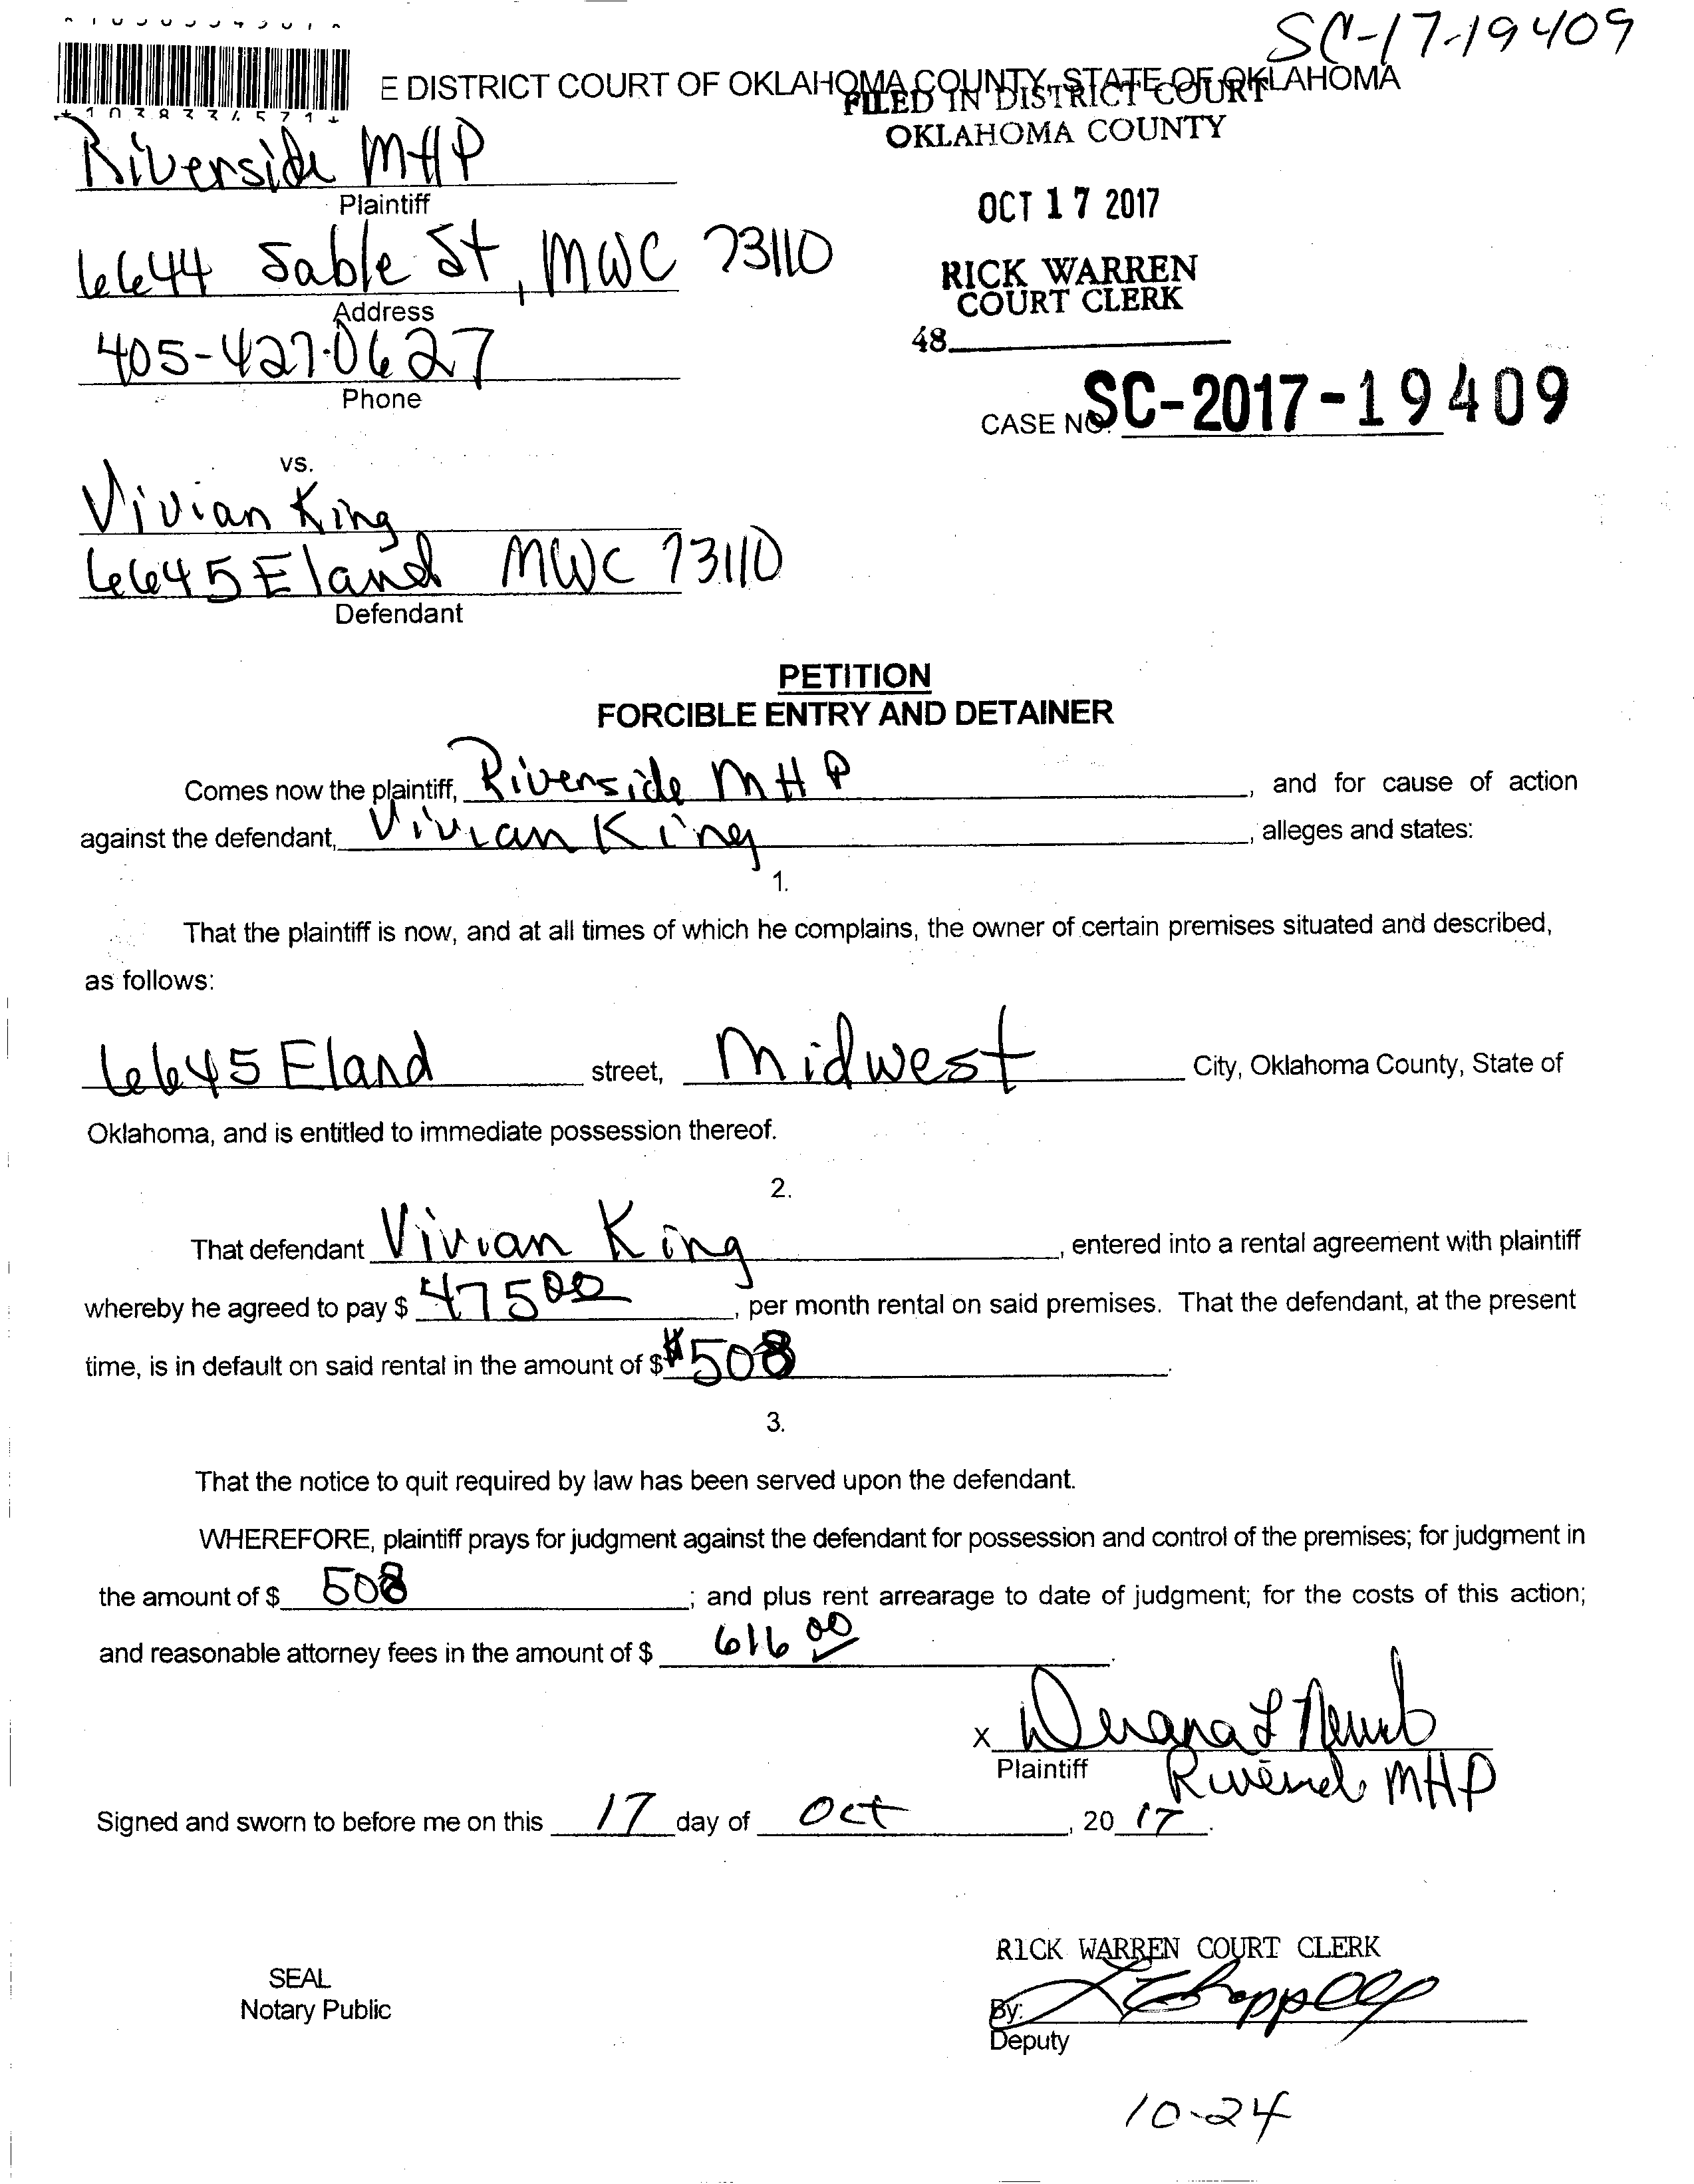 SC-17-19409
E DISTRICT COURT OF OKLAHOMA COUNTY, STATE OF OKLAHOMA
FILED IN DISTRICT COURT
OKLAHOMA COUNTY
*1038334571*
Riverside MHP
Plaintiff
OCT 17 2017
6644 Sable St, MWC 73110
Address
RICK WARREN
COURT CLERK
405-427-0627
Phone
48
CASE NO. SC-2017-19409
vs.
Vivian King
6645 Eland MWC 73110
Defendant
PETITION
FORCIBLE ENTRY AND DETAINER
Comes now the plaintiff, Riverside MHP, and for cause of action
against the defendant, Vivian King, alleges and states:
1.
That the plaintiff is now, and at all times of which he complains, the owner of certain premises situated and described,
as follows:
6645 Eland street, Midwest City, Oklahoma County, State of
Oklahoma, and is entitled to immediate possession thereof.
2.
That defendant Vivian King, entered into a rental agreement with plaintiff
whereby he agreed to pay $ 475 00, per month rental on said premises. That the defendant, at the present
time, is in default on said rental in the amount of $ $508.
3.
That the notice to quit required by law has been served upon the defendant.
WHEREFORE, plaintiff prays for judgment against the defendant for possession and control of the premises; for judgment in
the amount of $ 508; and plus rent arrearage to date of judgment; for the costs of this action;
and reasonable attorney fees in the amount of $ 616 00.
X
Plaintiff
MHP
Signed and sworn to before me on this 17 day of Oct, 20 17.
RICK WARREN COURT CLERK
SEAL
Notary Public
By:
Deputy
10-24